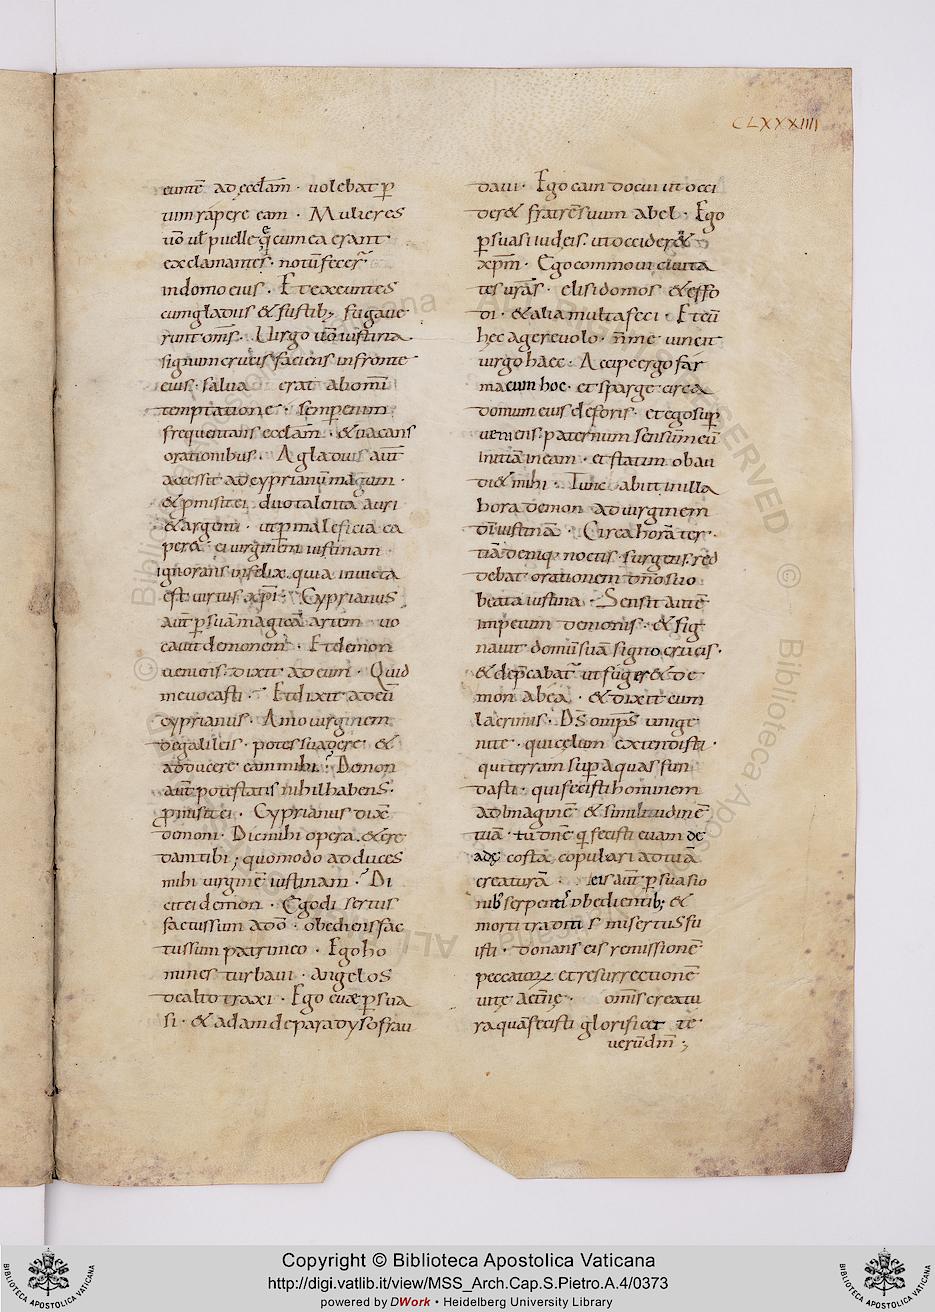 CLXXXIIII
euntē ad ęcclam̄ · uolebat p̄
uim rapere eam · Mulieres
uō ul̄ puellę q̄ cum ea erant ·
exclamantes · notū fecer̄ ·
in domo eius · Et exeuntes
cum gladiis & fustib; fugaue
runt om̄s · Uirgo uō iustina
signum crucis faciens in fronte
eius · salua erat ab om̄i
temptatione · semper enim
frequentans ecclam̄ · & uacans
orationibus · Agladius aūt
accessit ad cyprianū magum ·
& p̱misit ei duo talenta auri
& argenti · ut p̱ maleficia ca
per& ei uirginem iustinam ·
ignorans infelix quia inuicta
est uirtus xp̄i · Cyprianus
aūt p̱ suā magicā artem uo
cauit demonem · Et demon
ueniens · dixit ad eum · Quid
me uocasti · Et dixit ad eū
cyprianus · Amo uirginem
de galileis · potes suadere · &
adducere eam mihi · Demon
aūt potestatis nihil habens ·
p̱misit ei · Cyprianus dixē
demoni · Dic mihi opera · & cre
dam tibi ; quomodo adduces
mihi uirginē iustinam · Di
cit ei demon · Ego di sertus
factus sum a dō · obediens fac
tus sum patri meo · Ego ho
mines turbaui · angelos
de alto traxi · Ego euæ p̱sua
si · & adam de paradyso frau
daui · Ego cain docui ut occi
der& fratrē suum abel · Ego
p̱suasi iudeis · ut occider&
xpm̄ · Ego commoui ciuita
tes urās · elisi domos & effo
di · & alia multa feci · Et cū
hec agere uolo · n̄ me uincit
uirgo haec · Accipe ergo far
ma cum hoc · et sparge circa
domum eius deforis · et ego sup̱
ueniens paternum sensum eū
initiā in eam · et statim obau
di& mihi · Tunc abiit in illa
hora demon ad uirginem
dī iustinā · Circa horā ter
tiā deniq; noctis · surgens · red
debat orationem dn̄o suo
beata iustina · Sensit autē
impetum demonis · & sig
nauit domū suā signo crucis ·
& dep̱cabat̄ ut fuger& de
mon ab ea · & dixit cum
lacrimis · D̄s omp̄s unige
nite · qui cęlum extendisti ·
qui terram sup̱ aquas fun
dasti · qui fecisti hominem
ad imaginē & similitudinē
tuā · tu dn̄e q̱ fecisti euam de
adę costa copulari ad tuā
creaturā · eis aūt p̱suasio
nib; serpenti obedientib; &
morti traditis misertus fu
isti · donans eis remissionē
peccatorꝝ et resurrectionē
uitę aet̄nę · om̄is creatu
ra quā fecisti glorificet te
uerū dm̄ ·,
Copyright © Biblioteca Apostolica Vaticana
http://digi.vatlib.it/view/MSS_Arch.Cap.S.Pietro.A.4/0373
powered by DWork • Heidelberg University Library